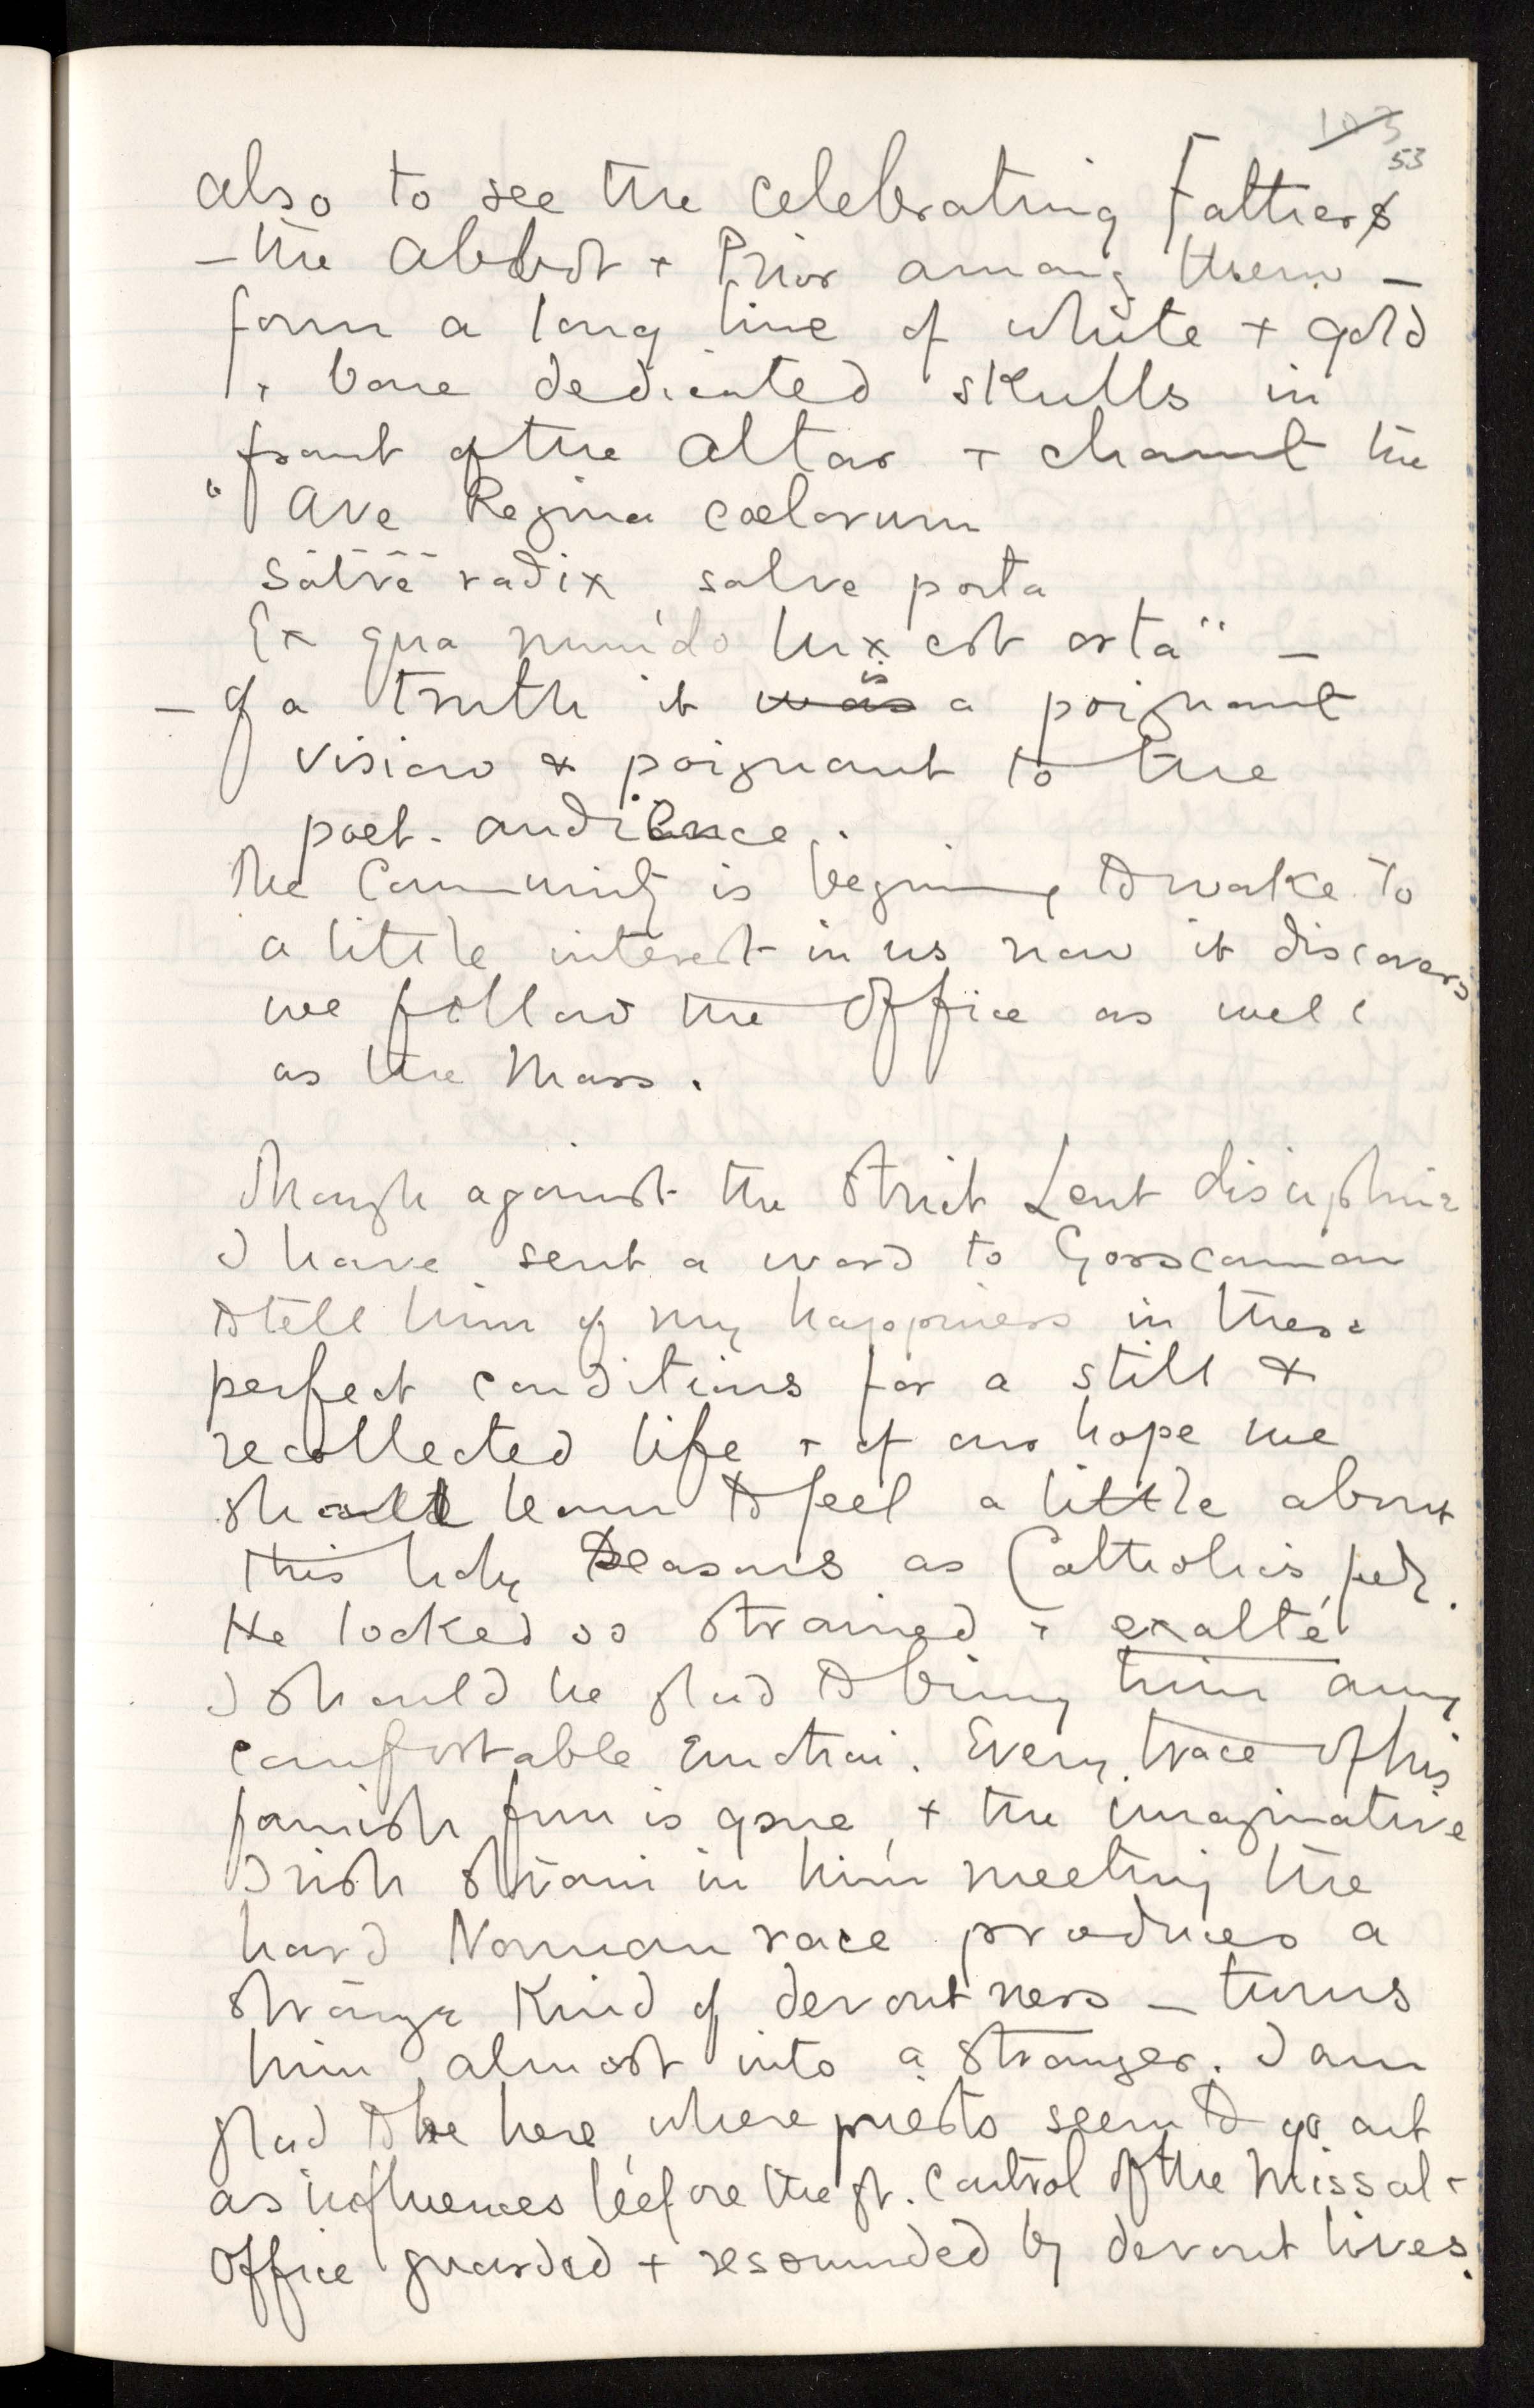 103
53
also to see the celebrating Fathers
— the Abbot + Prior among them —
form a long line of white + gold
+ bare dedicated skulls in
front of the Altar + chaunt the
" Ave Regina coelorum
Salve radix, salve porta
Ex qua mundo lux est orta" —
— of a truth it was is a poignant
vision & poignant to the
poet-audience.
The Community is beginning to wake to
a little interest in us now it discovers
we follow the Office as well
as the Mass.
Though against the strict Lent discipline
I have sent a word to Goscannon
to tell him of my happiness in these
perfect conditions for a still &
recollected life + of our hope we
shall learn to feel a little about
this holy Seasons as Catholics feel.
He looked so strained + exalté
I should be glad to bring him any
comfortable emotion. Every trace of his
fun is gone, + the imaginative
Irish strain in him meeting the
hard Norman race produces a
strange kind of devoutness — turns
him almost into a stranger. I am
glad to be here, where priests seem to go out
as influences before the gt. control of the Missal +
Office guarded + resounded by devout lives.